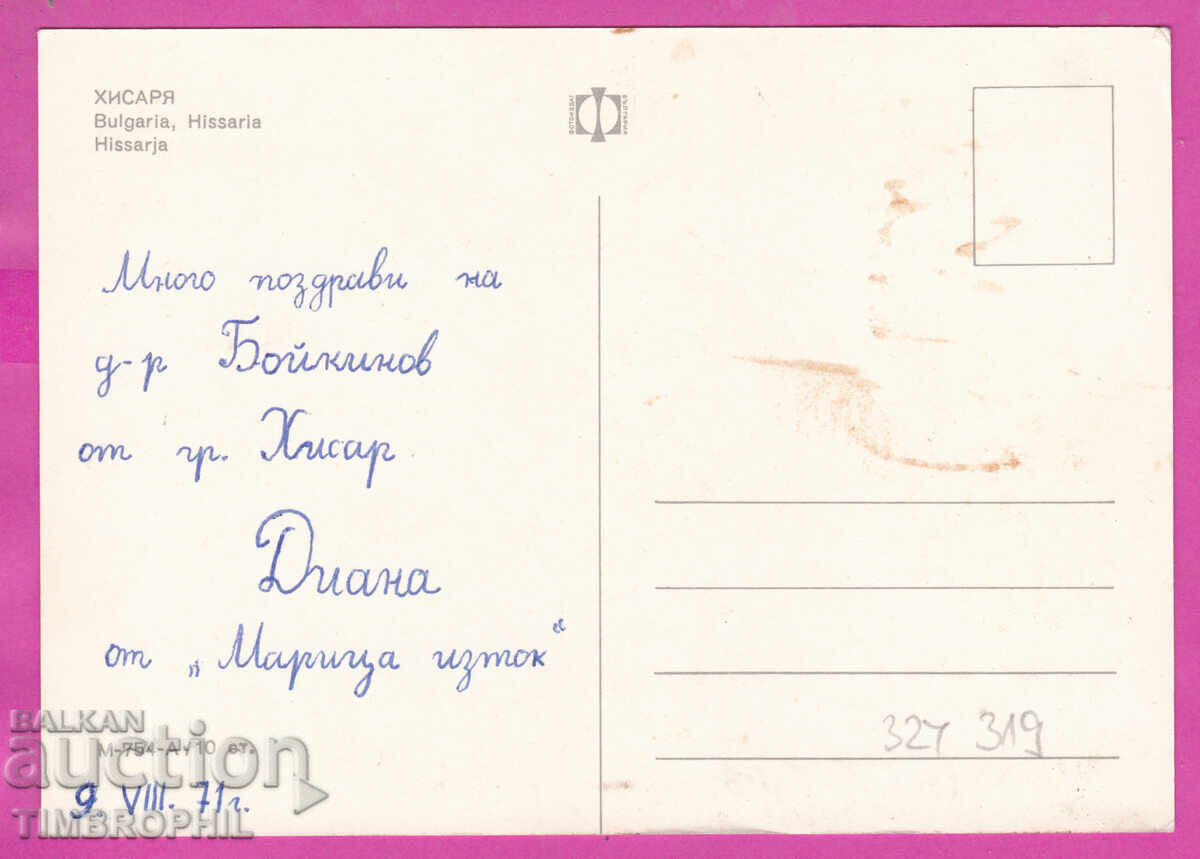 ХИСАРЯ
Bulgaria, Hissaria
Hissarja
ФОТОИЗДАТ
БЪЛГАРИЯ
Много поздрави на
д-р Бойкинов
от гр. Хисар
Диана
от „Марица изток“
М-754-А 10 ст.
9. VIII. 71 г.
327 319
BALKAN
auction
TIMBROPHIL